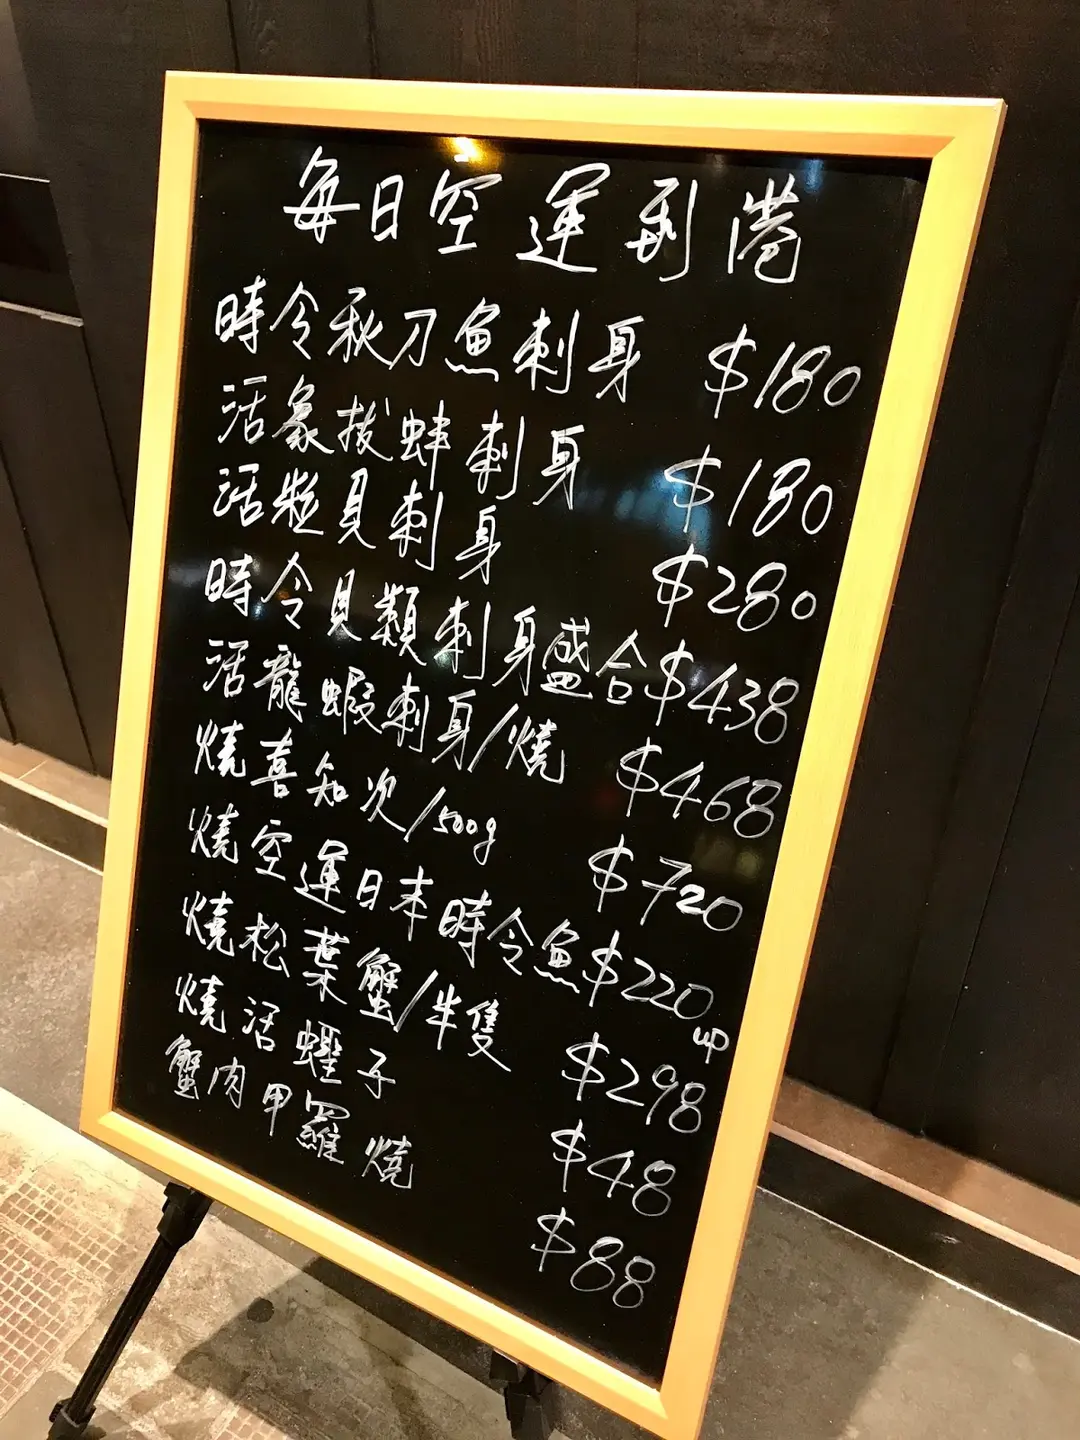 每日空運到港
時令秋刀魚刺身 $180
活象拔蚌刺身 $180
活粒貝刺身 $280
時令貝類刺身盛合 $438
活龍蝦刺身/燒 $468
燒喜知次/500g $720
燒空運日本時令魚 $220 up
燒松葉蟹/半隻 $298
燒活蟶子 $48
蟹肉甲羅燒 $88